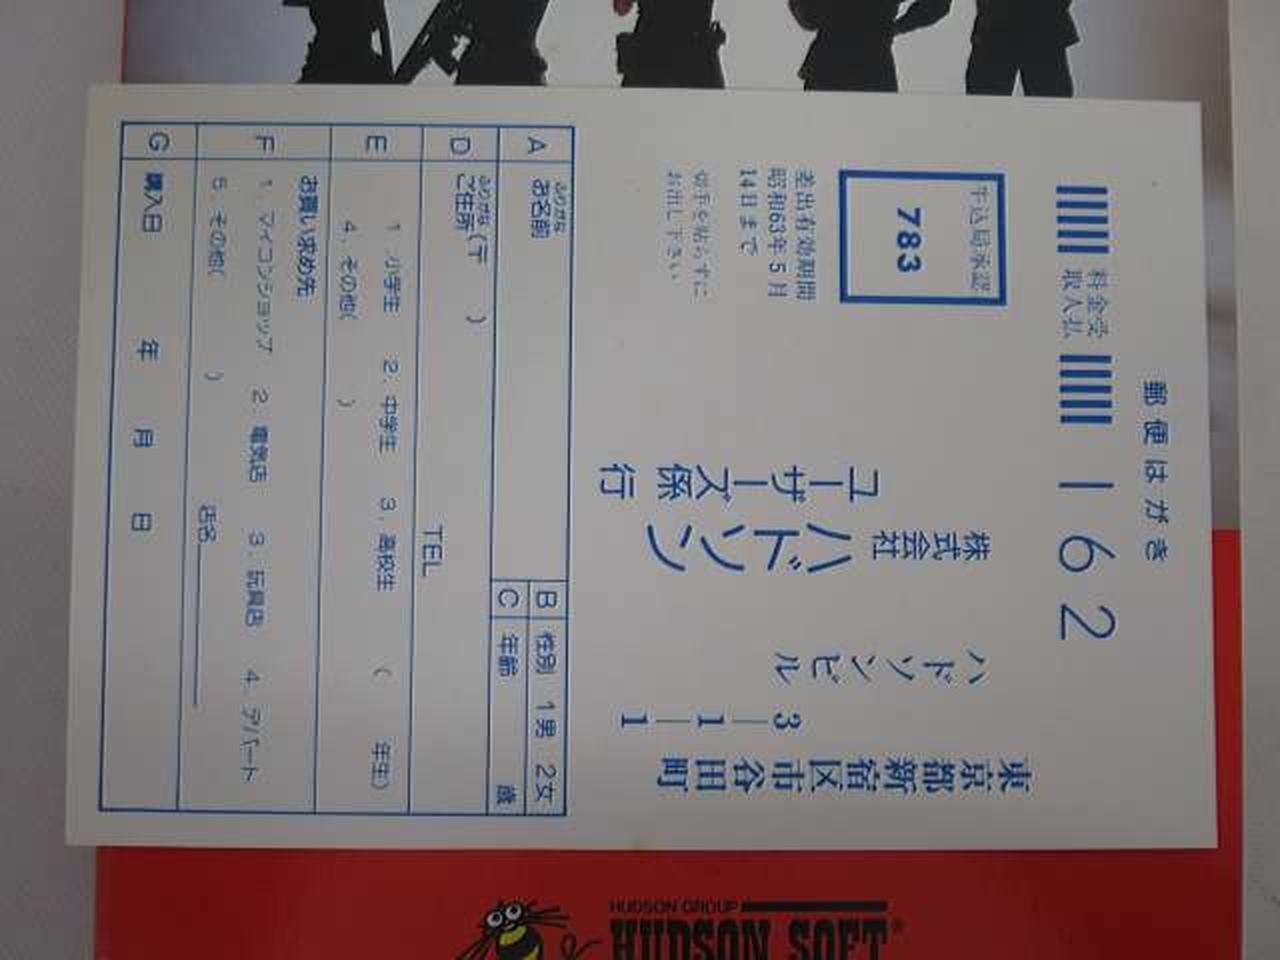 郵便はがき
162
料金受
取人払
牛込局承認
783
差出有効期間
昭和63年5月
14日まで
切手を貼らずに
お出し下さい
東京都新宿区市谷田町
3—1—1
ハドソンビル
株式会社 ハドソン
ユーザーズ係 行
A ふりがな お名前
B 性別 1男 2女
C 年齢 歳
D ふりがな ご住所(〒 )
TEL
E 1. 小学生 2. 中学生 3. 高校生 ( 年生)
4. その他( )
F お買い求め先
1. マイコンショップ 2. 電気店 3. 玩具店 4. デパート
5. その他( ) 店名
G 購入日 年 月 日
HUDSON GROUP
HUDSON SOFT®